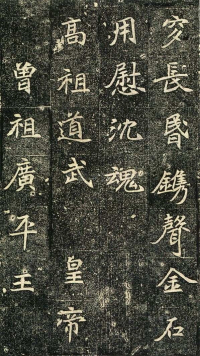 穸長昬鐫聲金石
用慰沈魂
高祖道武皇帝
曾祖廣平王